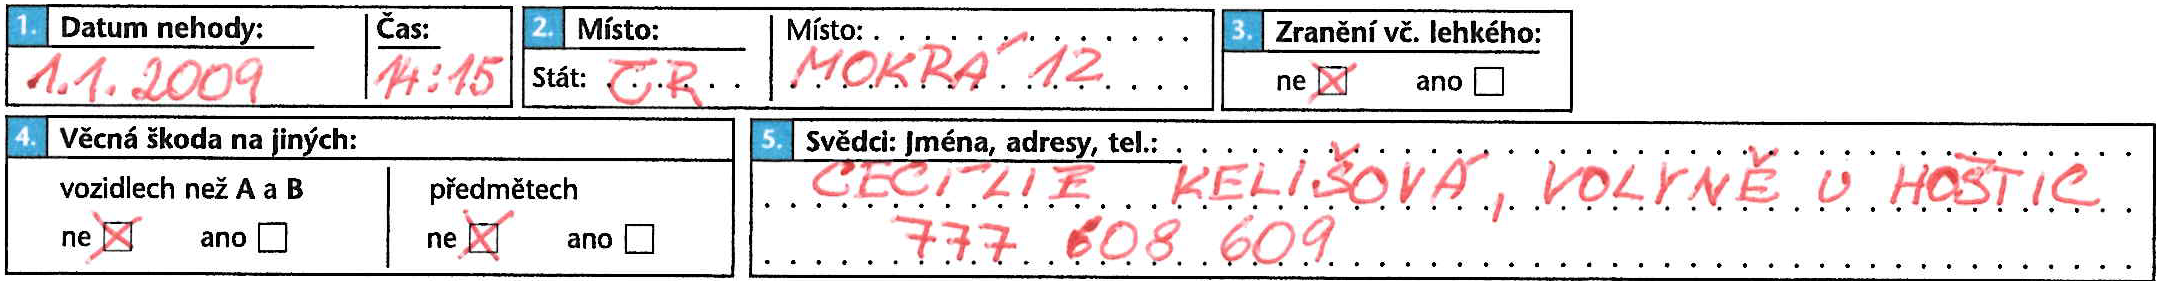 1. Datum nehody: Čas:
1.1.2009 14:15
2. Místo: Místo:
Stát: ČR MOKRÁ 12
3. Zranění vč. lehkého:
ne ano
4. Věcná škoda na jiných:
vozidlech než A a B předmětech
ne ano ne ano
5. Svědci: Jména, adresy, tel.:
CECÍLIE KELIŠOVÁ, VOLYNĚ U HOŠTIC
777 608 609